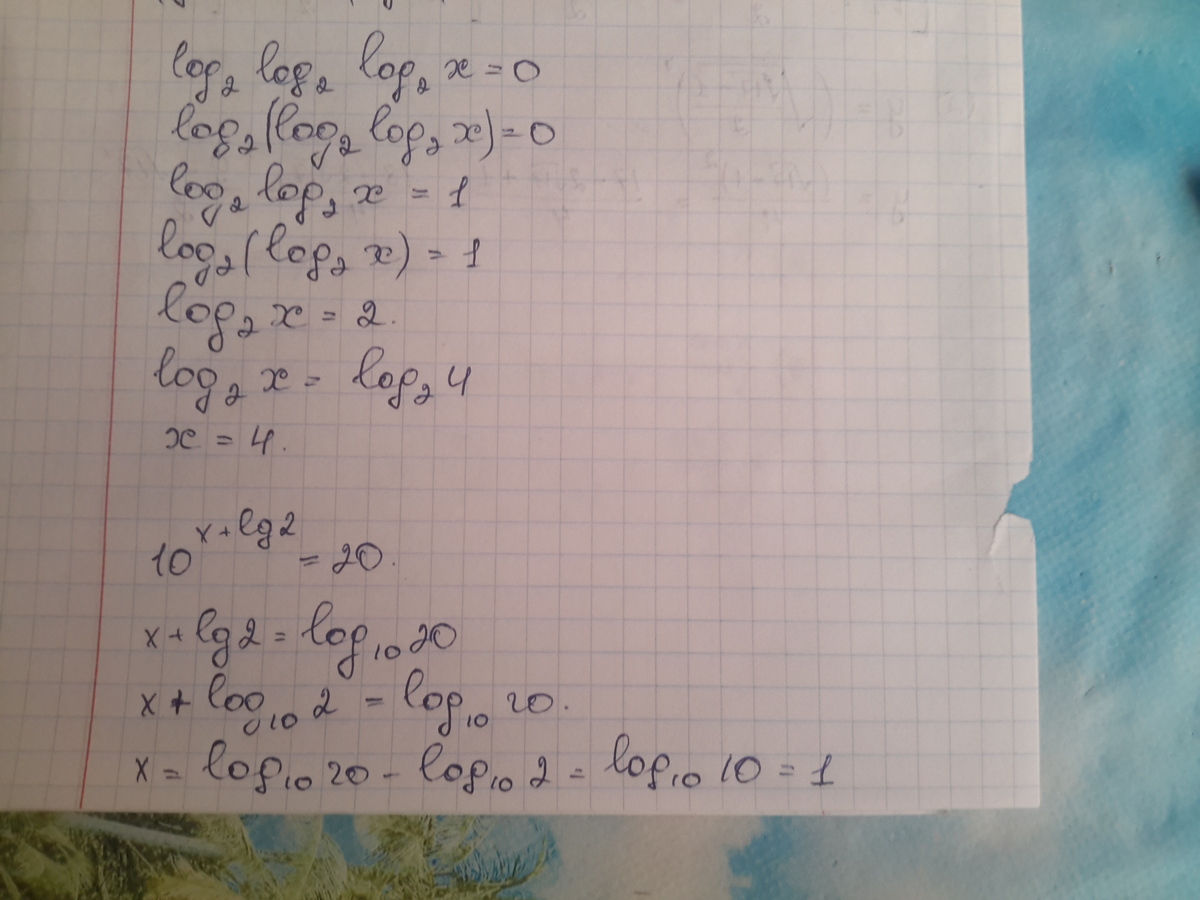 log₂ log₂ log₂ x = 0
log₂(log₂ log₂ x) = 0
log₂ log₂ x = 1
log₂(log₂ x) = 1
log₂ x = 2.
log₂ x = log₂ 4
x = 4.
10^(x + lg 2) = 20.
x + lg 2 = log₁₀ 20
x + log₁₀ 2 = log₁₀ 20.
x = log₁₀ 20 - log₁₀ 2 = log₁₀ 10 = 1